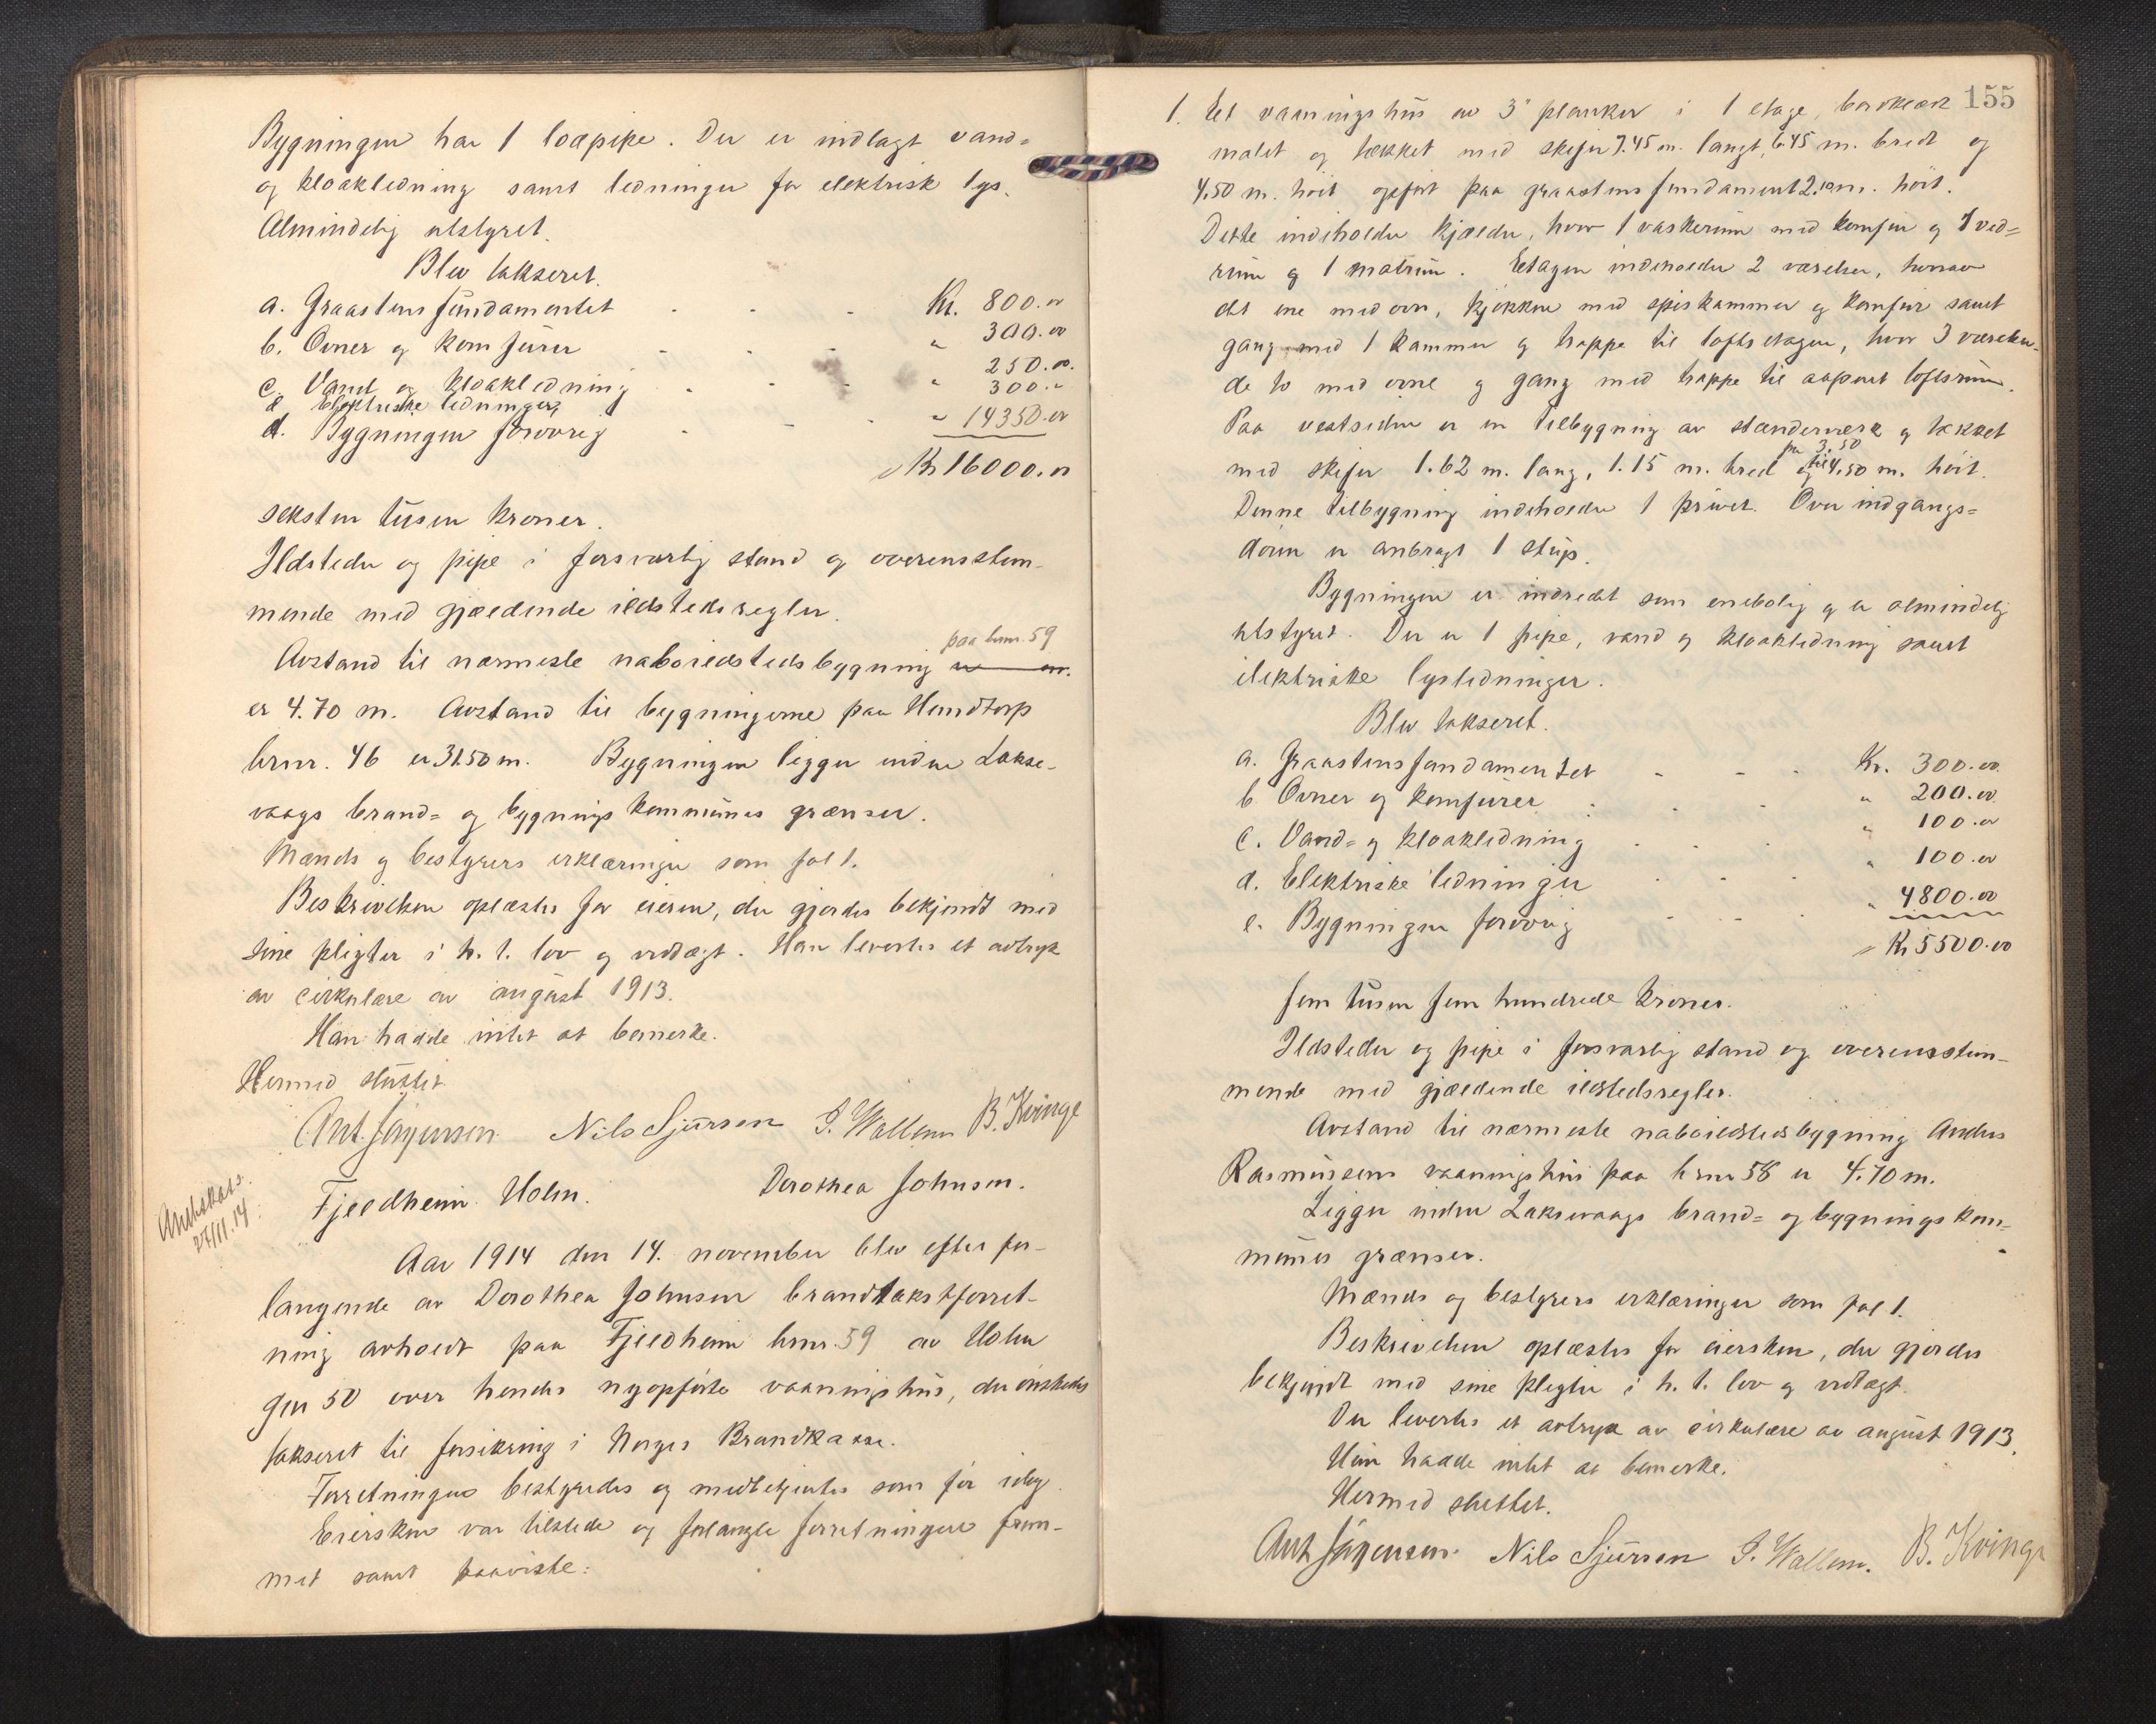 Bygningen har 1 loapipe. Der er indlagt vand=
og kloakledning samt ledninger for elektrisk lys.
Almindelig utstyret.
Blev takseret.
a. Graastensfundamentet . . . Kr. 800.00
b. Ovner og komfurer . . . " 300.00
c. Vand og kloakledning . . . " 250.00.
d Elektriske ledninger, 300."
d. Bygningen forøvrig . . . " 14350.00
Kr 16000.00
seksten tusen kroner.
Ildsteder og pipe i forsvarlig stand og overensstem-
mende med gjældende ildstedsregler.
paa brnr. 59
Avstand til nærmeste naboildstedsbygning
er 4.70 m. Avstand til bygningerne paa Hundtorp
brnr. 46 er 31.50 m. Bygningen ligger inden Lakse-
vaags brand= og bygningskommunes grænser.
Mænds og bestyrers erklæringer som fol 1.
Beskrivelsen oplæstes for eieren, der gjordes bekjendt med
sine pligter i h. t. lov og vedtægt. Han levertes et avtryk
av cirkulære av august 1913.
Han hadde intet at bemerke.
Hermed sluttet.
Ant. Jørgensen. Nils Sjursen S. Wallem B. Kvinge
Fjeldheim Holm. Dorothea Johnsen.
27/11.14
Aar 1914 den 14. november blev efter for-
langende av Dorothea Johnsen brandtakstforret-
ning avholdt paa Fjeldheim brnr. 59 av Holm
gnr 50 over hendes nyopførte vaaningshus, der ønskedes
takseret til forsikring i Norges Brandkasse.
Forretningen bestyredes og medbetjentes som før idag.
Eiersken var tilstede og forlangte forretningen frem-
met samt paaviste:
155
1. Et vaaningshus av 3" planker i 1 etage, bordklædt
malet og tækket med skifer 7.45 m. langt, 6.45 m. bredt og
4.50 m. høit opført paa graastensfundament 2.10 m. høit.
Dette indeholder kjælder, hvor 1 vaskerum med komfur og 1 ved=
rum og 1 matrum. Etagen indeholder 2 værelser, hvorav
det ene med ovn, kjøkken med spiskammer og komfur samt
gang med 1 kammer og trappe til loftsetagen, hvor 3 værelser
de to med ovne og gang med trappe til aapent loftsrum.
Paa vestsiden er en tilbygning av stænderverk og tækket
fra 3.50
med skifer 1.62 m. lang, 1.15 m. bred og til 4.50 m. høit.
Denne tilbygning indeholder 1 privet. Over indgangs=
døren er anbragt 1 stup.
Bygningen er indredet som enebolig og er almindelig
utstyret. Der er 1 pipe, vand og kloakledning samt
elektriske lysledninger.
Blev takseret.
a. Graastensfundamentet - - . Kr. 300.00.
b Ovner og komfurer . . . " 200.00
c. Vand= og kloakledning . . . " 100.00
d. Elektriske ledninger . - . " 100.00
e. Bygningen forøvrig - - . " 4800.00
Kr 5500.00
fem tusen fem hundrede kroner.
Ildsteder og pipe i forsvarlig stand og overensstem-
mende med gjældende ildstedsregler.
Avstand til nærmeste naboildstedsbygning Anders
Rasmussens vaaningshus paa brnr 58 er 4.70 m.
Ligger inden Laksevaags brand= og bygningskom-
munes grænser.
Mænds og bestyrers erklæringer som fol 1.
Beskrivelsen oplæstes for eiersken, der gjordes
bekjendt med sine pligter i h. t. lov og vedtægt.
Der levertes et avtryk av cirkulære av august 1913.
Hun hadde intet at bemerke.
Hermed sluttet.
Ant Jørgensen. Nils Sjursen S. Wallem. B. Kvinge